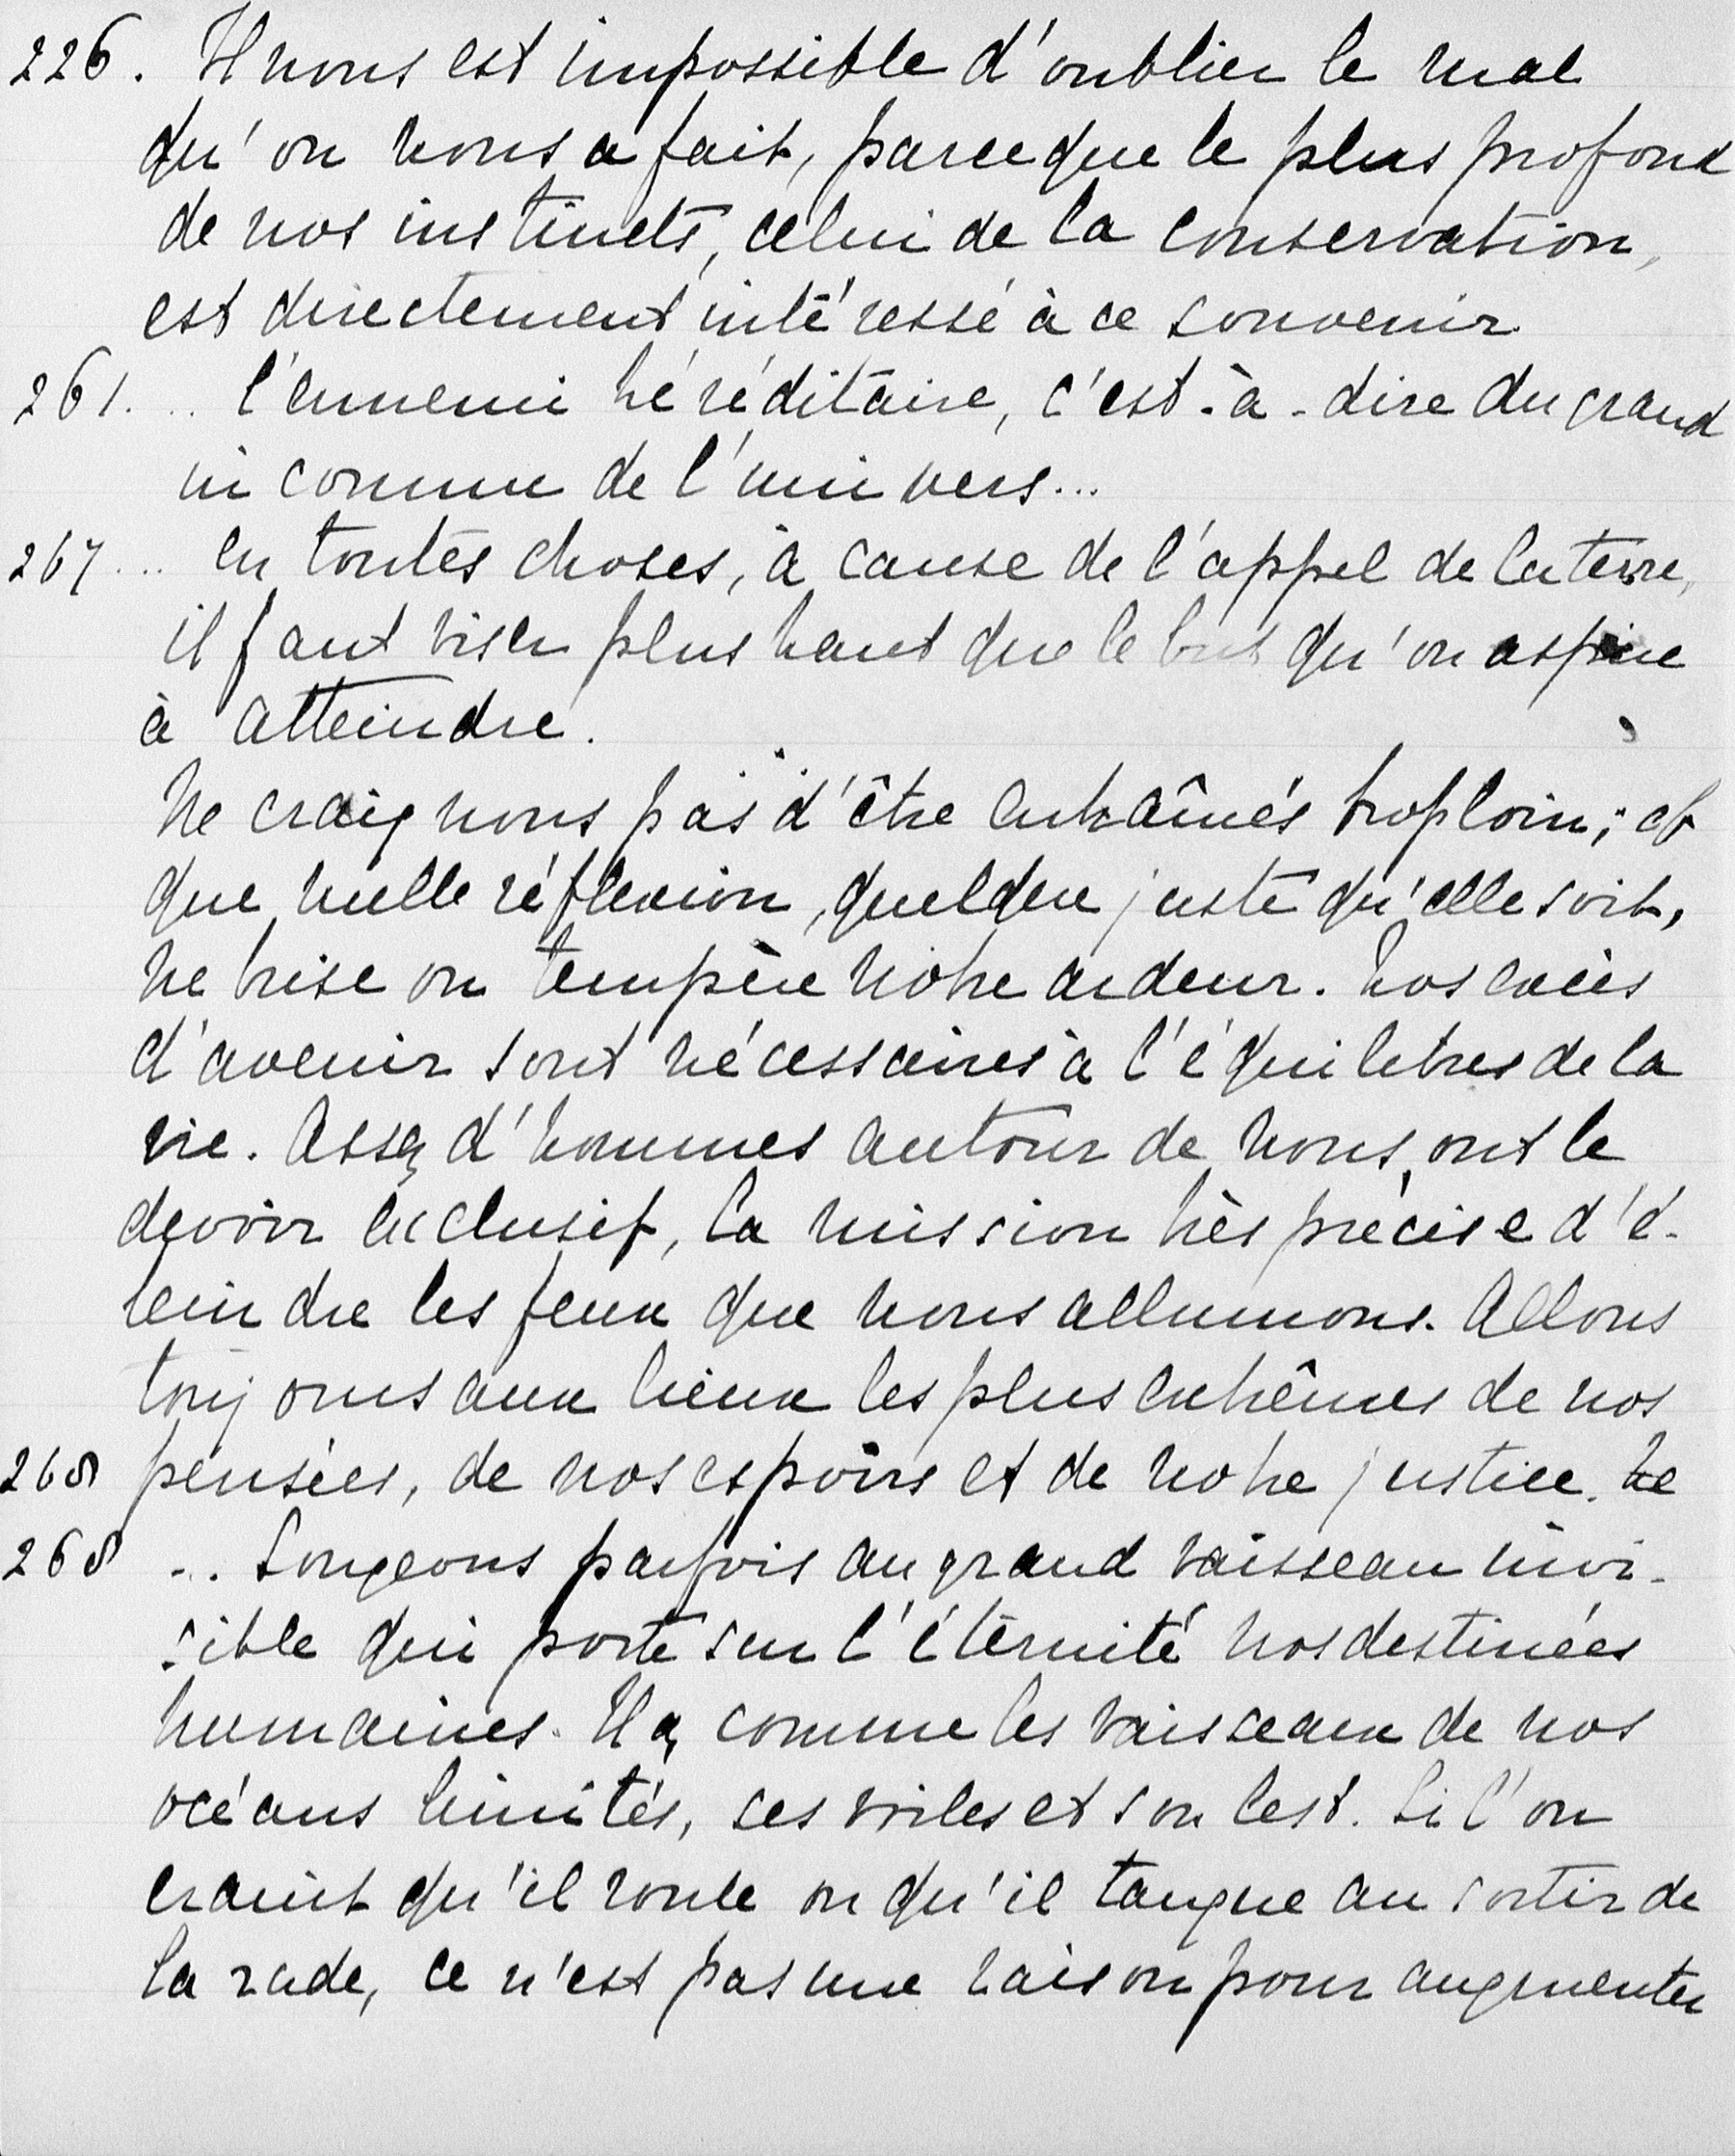 226. Il nous est impossible d'oublier le mal
qu'on nous a fait, parce que le plus profond
de nos instincts, celui de la conservation,
est directement intéressé à ce souvenir
261... l'ennemi héréditaire, c'est-à-dire du grand
inconnu de l'univers...
267... en toutes choses, à cause de l'appel de la terre,
il faut viser plus haut que le but qu'on aspire
à atteindre.
Ne craignons pas d'être entraînés trop loin; et
que nulle réflexion, quelque juste qu'elle soit,
ne brise ou tempère notre ardeur. Nos excès
d'avenir sont nécessaires à l'équilibres de la
vie. Assez d'hommes autour de nous ont le
devoir exclusif, la mission très précise d'é-
teindre les feux que nous allumons. Allons
toujours aux lieux les plus extrêmes de nos
268 pensées, de nos espoirs et de notre justice. Ne
268 ... Songeons parfois au grand vaisseau invi-
sible qui porte sur l'éternité nos destinées
humaines. Il a, comme les vaisseaux de nos
océans limités, ses voiles et son lest. Si l'on
craint qu'il roule ou qu'il tangue au sortir de
la rade, ce n'est pas une raison pour augmenter